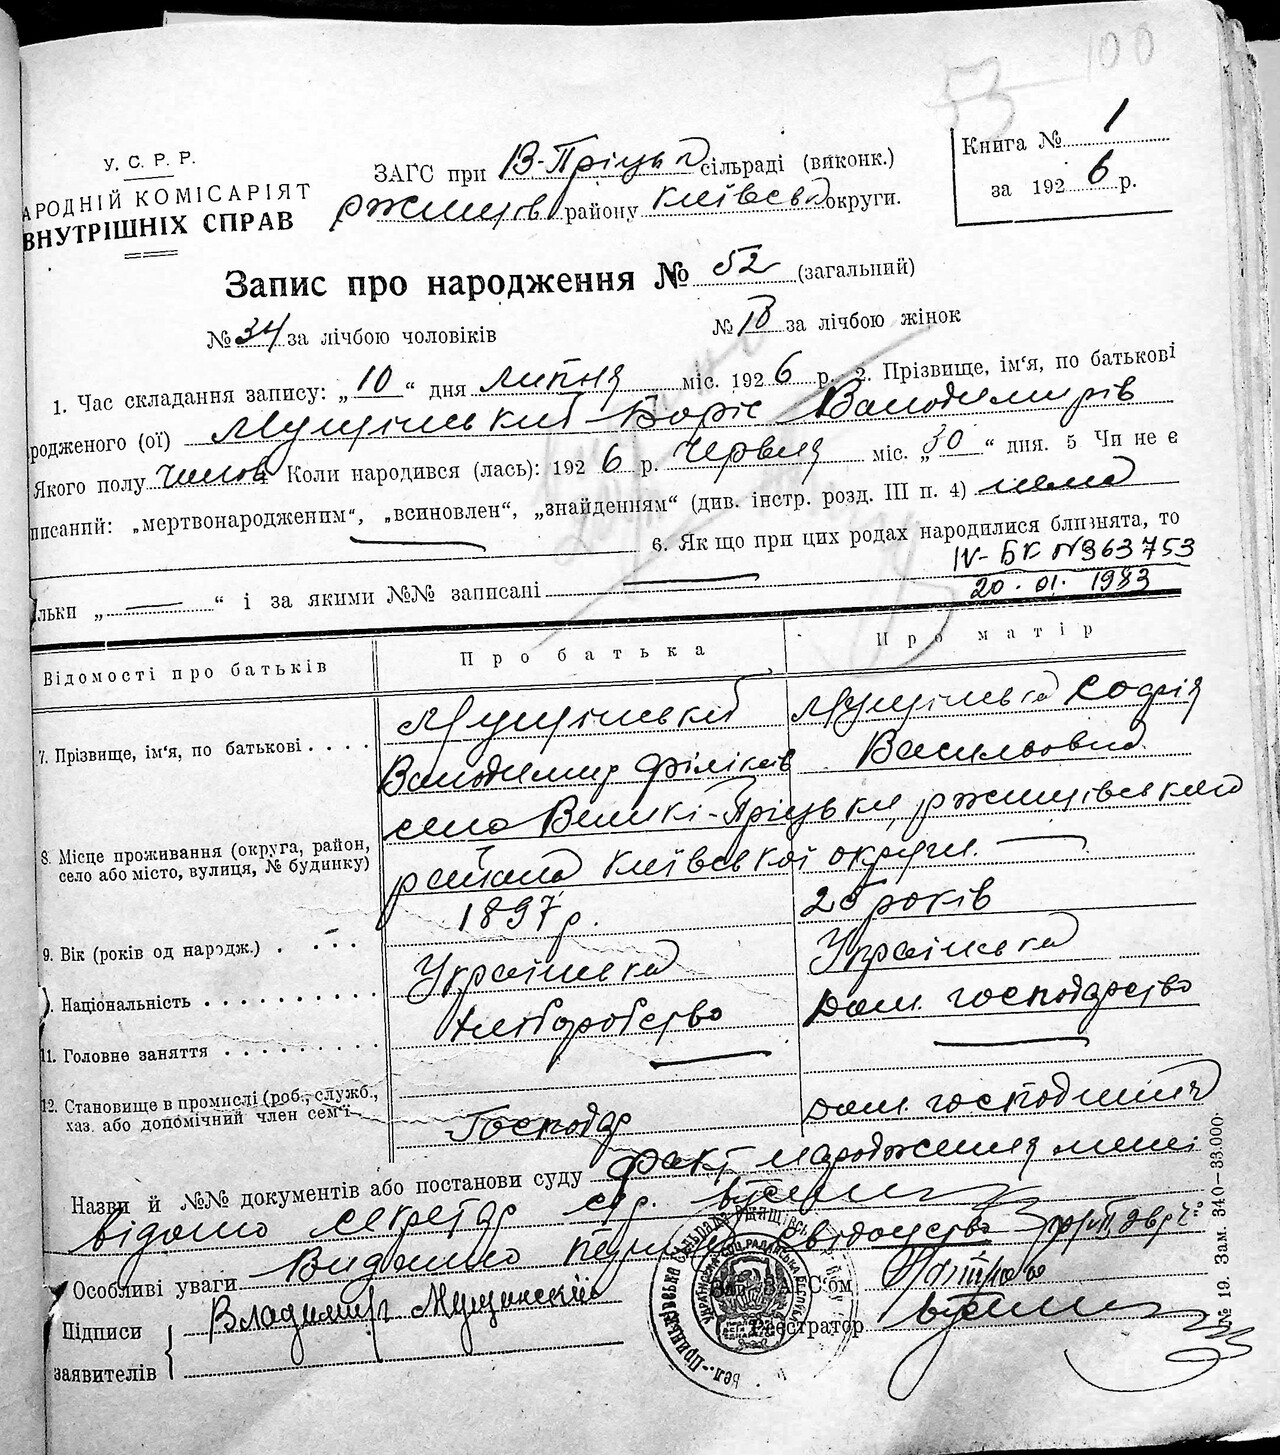 53 100
У. С. Р. Р.
АРОДНІЙ КОМІСАРІЯТ
ВНУТРІШНІХ СПРАВ
ЗАГС при В-Пріцьк сільраді (виконк.)
Ржищів району Київськ округи.
Книга № 1
за 1926 р.
Запис про народження № 52 (загальний)
№ 34 за лічбою чоловіків № 18 за лічбою жінок
1. Час складання запису: „10“ дня липня міс. 1926 р. 2. Прізвище, ім'я, по батькові
родженого (ої) Мущінський Боріс Володимирів
Якого полу чолов Коли народився (лась): 1926 р. Червня міс. „30“ дня. 5 Чи не є
писаний: „мертвонародженим“, „всиновлен“, „знайденням“ (див. інстр. розд. III п. 4) нема
6. Якщо при цих родах народилися близнята, то
IV-БК №363753
ільки „ — “ і за якими №№ записані —
20.01.1983
Відомості про батьків Про батька Про матір
7. Прізвище, ім'я, по батькові . . . . Мущінський Мущінська Софія
Володимир Філіків Васильовна
8. Місце проживання (округа, район, село Великі-Пріцьки, Ржищівського
село або місто, вулиця, № будинку) района Київської округи. —
9. Вік (років од народж.) . . . . 1897 р. 25 років
). Національність . . . . . . . . . . . Українська Українська
11. Головне заняття . . . . . . . . . Хліборобство Дом. господарство
12. Становище в промислі (роб., служб.,
хаз. або допоміжний член сем'ї Господар Дом. господиня
Назви й №№ документів або постанови суду Факт народження мені
відомо секретар с/р.
Особливі уваги Видано первисне свідоцтво
Підписи
заявителів
Владимир Мущинский
Зав. ЗАГС'ом
Реєстратор
Вел.-Прицьківська сільрада Ржищівськ.
№ 19. Зам. 340–33.000.